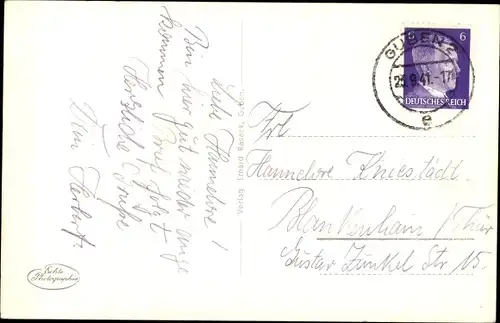 Liebe Hannelore!
Bin hier gut wieder ange
kommen. Brief folgt
Herzliche Grüße
Dein Herbert.
Echte
Photographie
Verlag Erhard
GUBEN 2
23.9.41.-17
e
6
DEUTSCHES REICH
Frl
Hannelore Kniestädt
Blankenhain/Thür
Gustav Zunkel Str 15.